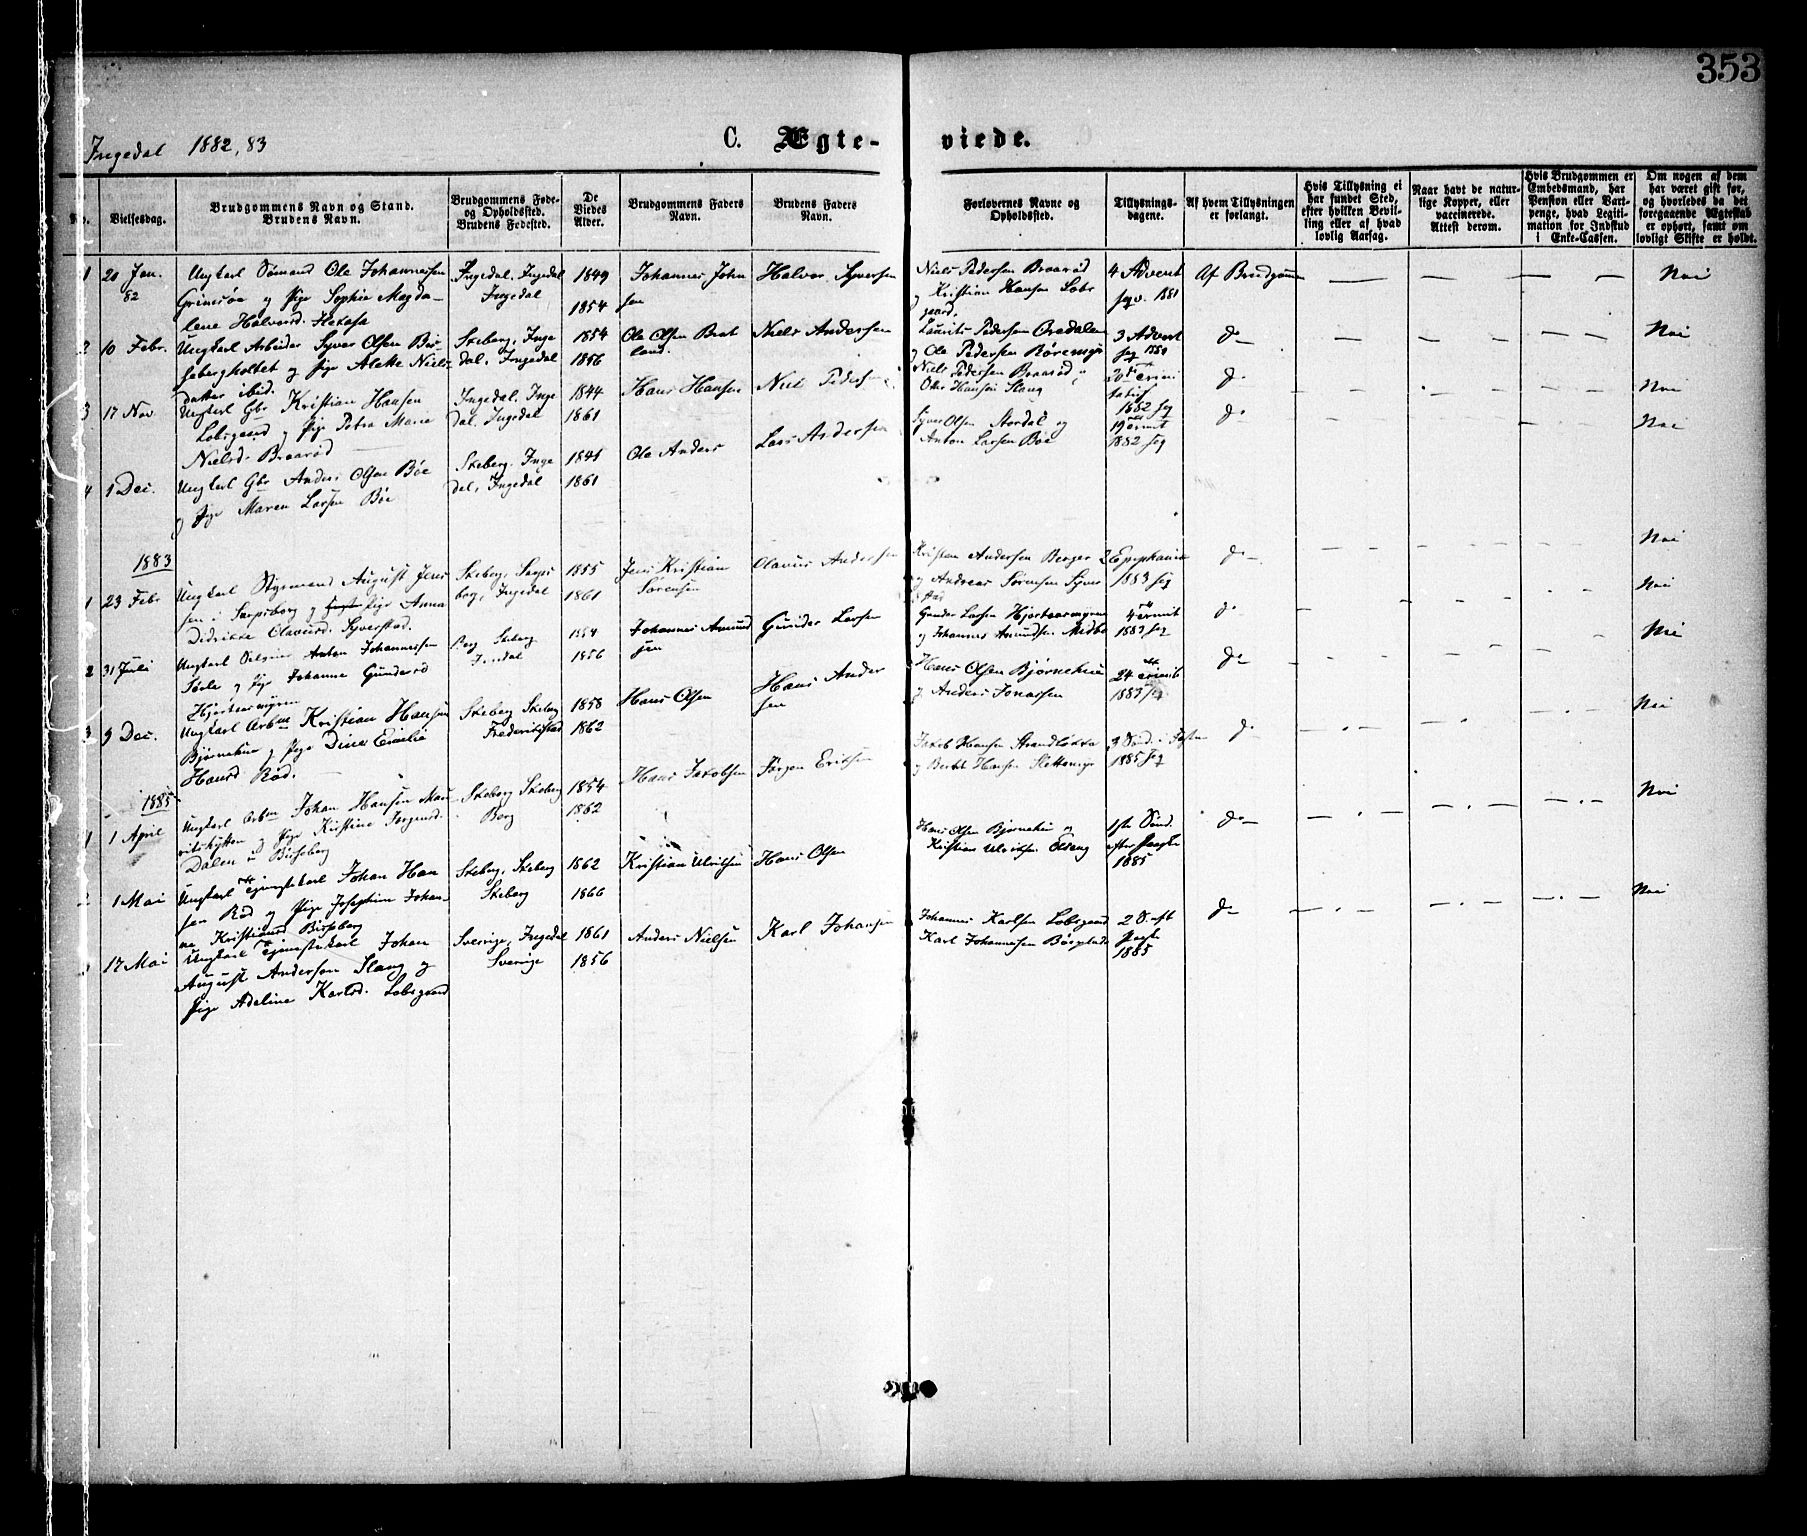 353
Ingedal 1882, 83
C. Ægte- viede.
No.
Vielsesdag.
Brudgommens Navn og Stand.
Brudens Navn.
Brudgommens Føde-
og Opholdssted.
Brudens Fødested.
De
Viedes
Alder.
Brudgommens Faders
Navn.
Brudens Faders
Navn.
Forlovernes Navne og
Opholdssted.
Tillysnings-
dagene.
Af hvem Tillysningen
er forlangt.
Hvis Tillysning ei
har fundet Sted,
efter hvilken Bevil-
ling eller af hvad
lovlig Aarsag.
Naar havt de natur-
lige Kopper, eller
vaccinerede.
Attest derom.
Hvis Brudgommen er
Embedsmand, har
Pension eller Vart-
penge, hvad Legiti-
mation for Indskud
i Enke-Cassen.
Om nogen af dem
har været gift før,
og hvorledes da det
foregaaende Ægteskab
er ophørt, samt om
lovligt Skifte er holdt.
1 20 Jan. 82
Ungkarl Sømand Ole Johannesen
Grimsøe og Pige Sophie Magda-
lene Halvorsd.
Ingedal, Ingedal
Ingedal
1849
1854
Johannes John
sen
Halvor Syversen
Niels Pedersen Braarød
og Kristian Hansen Lobs
gaard.
4 Advent
seqv. 1881
Af Brudgommen
Nei
2 10 Febr.
Ungkarl Arbeider Syver Olsen Bø-
sebergholtet og Pige Alette Niels-
datter ibid.
Skeberg, Inge
dal, Ingedal
1854
1856
Ole Olsen Brat
land.
Niels Andersen
Laurits Pedersen Oredalen
og Ole Pedersen Røremyr
3 Advent
seq 1881
do
Nei
3 17 Nov
Ungkarl Gbr Kristian Hansen
Lobsgaard og Pige Petra Marie
Nielsd. Braarød
Ingedal, Inge
dal, Ingedal
1844
1861
Hans Hansen
Niels Pedersen
Niels Pedersen Braarød
Ole Hansen Slang
1882 seq
do
Nei
4 1 Dec.
Ungkarl Gbr Anders Olsen Bøe
og Pige Maren Larsen Bøe
Skeberg, Inge
dal, Ingedal
1841
1861
Ole Anders
Lars Andersen
Syver Olsen Stordal og
Anton Larsen Bøe
1882 seq
do
Nei
1883
1 23 Febr
Ungkarl Styrmand August Jens
sen i Sarpsborg og Pige Anna
Didrikke Olavusd. Syverstad.
Skeberg, Sarps
borg, Ingedal
1855
1861
Jens Kristian
Sørensen
Olavus Andersen
Kristen Andersen Berger
og Andreas Sørensen Syver
stad
2 Epiphanias
1883 seq
do
Nei
2 31 Juli
Ungkarl Anton Johannessen
Sørle og Pige Johanne Gundersd
Hjortemyren
Berg Skeberg
Ingedal
1854
1856
Johannes Amund
sen
Gunder Larsen
Gunder Larsen Hjortemyren
og Johannes Amundsen Midbø
1883 seq
do
Nei
3 9 Dec.
Ungkarl Arbm Kristian Hansen
Bjørnehue og Pige Dina Emilie
Hansd Rød.
Skeberg Skeberg
Frederikstad
1858
1862
Hans Olsen
Hans Ander
sen
Hans Olsen Bjørnehue
og Anders Jonassen
1883 seq
do
Nei
1885
1 1 April
Ungkarl Arbm Johan Hansen Mau
ritshytten og Pige Kristine Jørgensd.
Dalen u Birseberg
Skeberg Skeberg
Berg
1854
1862
Hans Jakobsen
Jørgen Eriksen
Jakob Hansen Strandløkka
og Bertel Hansen Slettemyr
3 Sønd. i Fasten
1885 seq
do
Nei
2 1 Mai
Ungkarl Tjenestekarl Johan Han
sen Rød og Pige Josephine Johan-
ne Kristiansd Birseberg
Skeberg, Skeberg
Skeberg
1862
1866
Kristian Ulriksen
Hans Olsen
Hans Olsen Bjørnehue og
Kristian Ulriksen
1ste Sønd.
efter Paaske
1885
do
Nei
17 Mai
Ungkarl Tjenestekarl Johan
August Andersen Slang og
Pige Adeline Karlsd. Lobsgaard
Sverige, Ingedal
Sverige
1861
1856
Anders Nielsen
Karl Johansen
Johannes Karlsen Lobsgaard
Karl Johannesen
2 S. eft
Paaske
1885
do
Nei